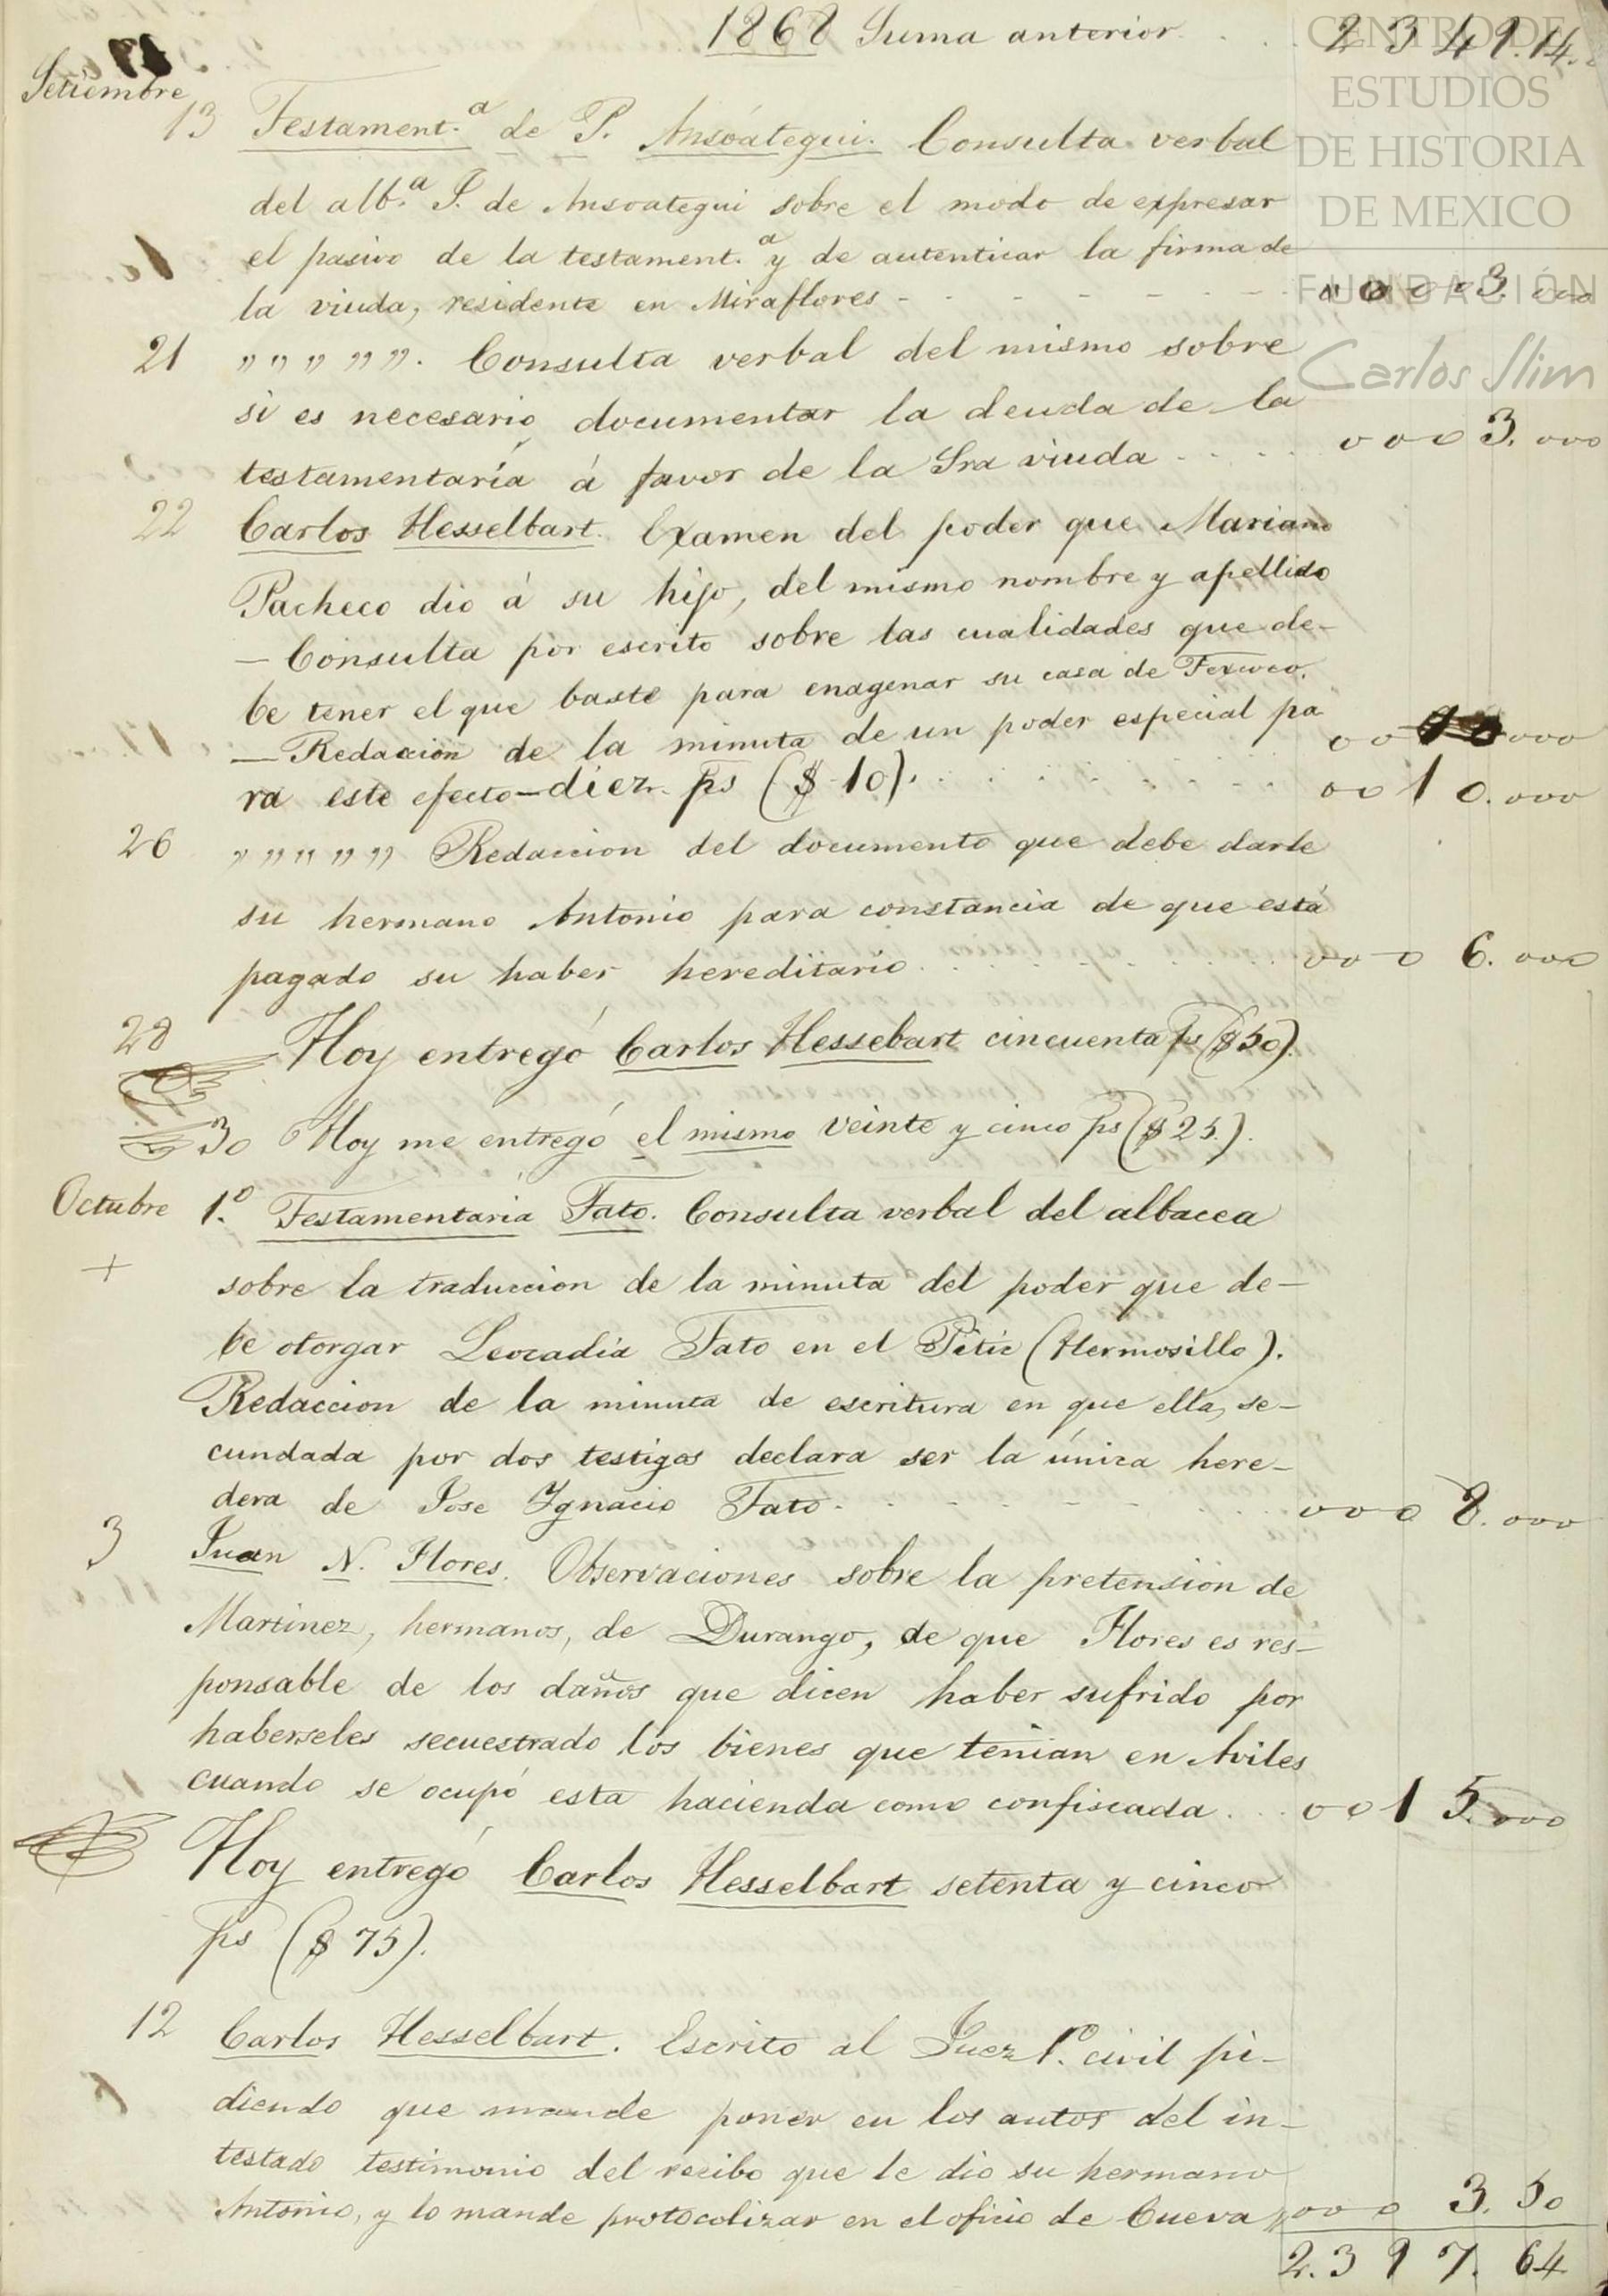 1868 Suma anterior . . . 2349.14.
CENTRO DE
ESTUDIOS
DE HISTORIA
DE MEXICO
FUNDACIÓN
Carlos Slim
Setiembre
13 Testament.ª de P. Ansoátegui. Consulta verbal
del alb.ª J. de Ansoategui sobre el modo de expresar
el pasivo de la testament.ª y de autenticar la firma de
la viuda, residente en Miraflores - - - - - - - ooo3.000
21 " " " " ". Consulta verbal del mismo sobre
si es necesario documentar la deuda de la
testamentaría á favor de la Sra viuda . . . . . ooo3.000
22 Carlos Hesselbart. Examen del poder que Mariano
Pacheco dio á su hijo, del mismo nombre y apellido
— Consulta por escrito sobre las cualidades que de-
be tener el que baste para enagenar su casa de Texcoco.
— Redaccion de la minuta de un poder especial pa oo10000
ra este efecto—diez ps ($ 10). . . . . . . . . oo10.000
26 " " " " " Redaccion del documento que debe darle
su hermano Antonio para constancia de que está
pagado su haber hereditario . . . . . . . ooo6.000
28 Hoy entregó Carlos Hessebart cincuenta ps ($50).
30 Hoy me entregó el mismo veinte y cinco ps ($25.).
Octubre 1.º Testamentaría Tato. Consulta verbal del albacea
+ sobre la traduccion de la minuta del poder que de-
be otorgar Leocadia Tato en el Pitic (Hermosillo).
Redaccion de la minuta de escritura en que ella, se-
cundada por dos testigos declara ser la única here-
dera de Jose Ygnacio Tato. - - - - - - - ooo8.000
3 Juan N. Flores. Observaciones sobre la pretension de
Martinez, hermanos, de Durango, de que Flores es res-
ponsable de los daños que dicen haber sufrido por
haberseles secuestrado los bienes que tenian en Aviles
cuando se ocupó esta hacienda como confiscada . . . oo15.000
Hoy entregó Carlos Hesselbart setenta y cinco
ps ($ 75).
12 Carlos Hesselbart. Escrito al Juez 1.º civil pi-
diendo que mande poner en los autos del in-
testado testimonio del recibo que le dio su hermano
Antonio, y lo mande protocolizar en el oficio de Cueva ,, ooo3.50
2.397.64